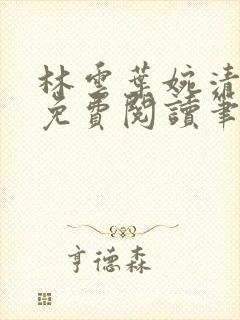 林雲葉婉清
免費閱讀筆
亨德森